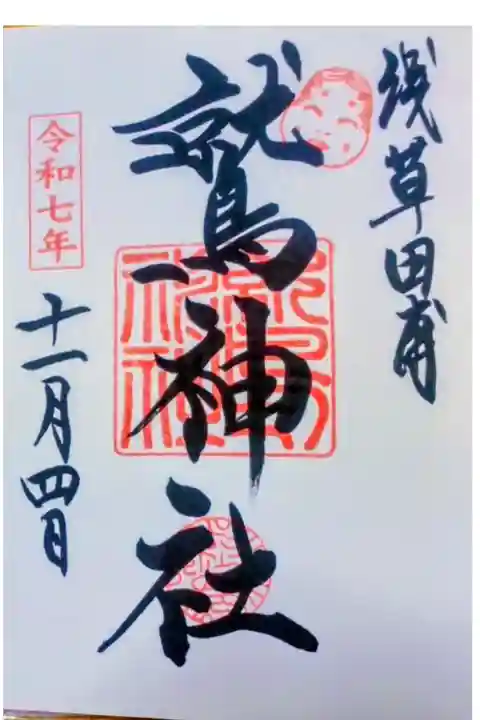 浅草田甫
鷲神社
鷲神社
令和七年
十一月四日